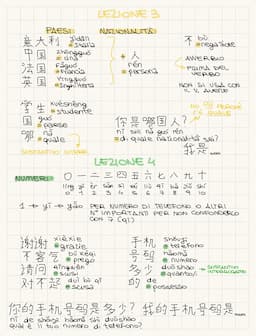 LEZIONE 3
PAESI
NAZIONALITÀ
意大利 yìdàlì
italia
中国 zhōngguó
cina
法国 fǎguó
francia
英国 yīngguó
inghilterra
人
rén
persona
不 bù
negazione
AVVERBIO
PRIMA DEL
VERBO
NON SI USA CON
学生 xuéshēng
studente
国 guó
paese
哪 nǎ
quale
你是哪国人?
nǐ shì nǎ guó rén
di quale nazionalità sei?
我是
LEZIONE 4
NUMERI
〇 一 二 三 四 五 六 七 八 九 十
líng yī èr sān sì wǔ liù qī bā jiǔ shí
0 1 2 3 4 5 6 7 8 9 10
1 → yī → yāo
PER NUMERO DI TELEFONO O ALTRI
N° IMPORTANTI PER NON CONFONDERLO
CON 7 (qī)
谢谢 xièxie
grazie
不客气 bú kèqi
prego
请问 qǐngwèn
scusi
对不起 duì bù qǐ
scusa
手机 shǒujī
telefono
号码 hàomǎ
numero
多少 duōshǎo
quanto?
的 de
possessivo
你的手机号码是多少? 我的手机号码是
nǐ de shǒujī hàomǎ shì duōshǎo
qual è il tuo numero di telefono?